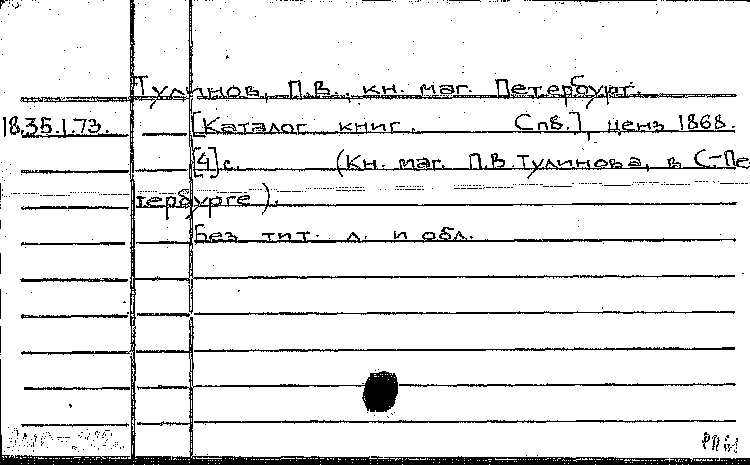 Тулинов, П.В., кн. маг. Петербург.
18.35.1.73. [Каталог книг. Спб.], ценз 1868.
[4] с. (Кн. маг. П.В. Тулинова, в С-Пе
тербурге).
Без тит. л. и обл.